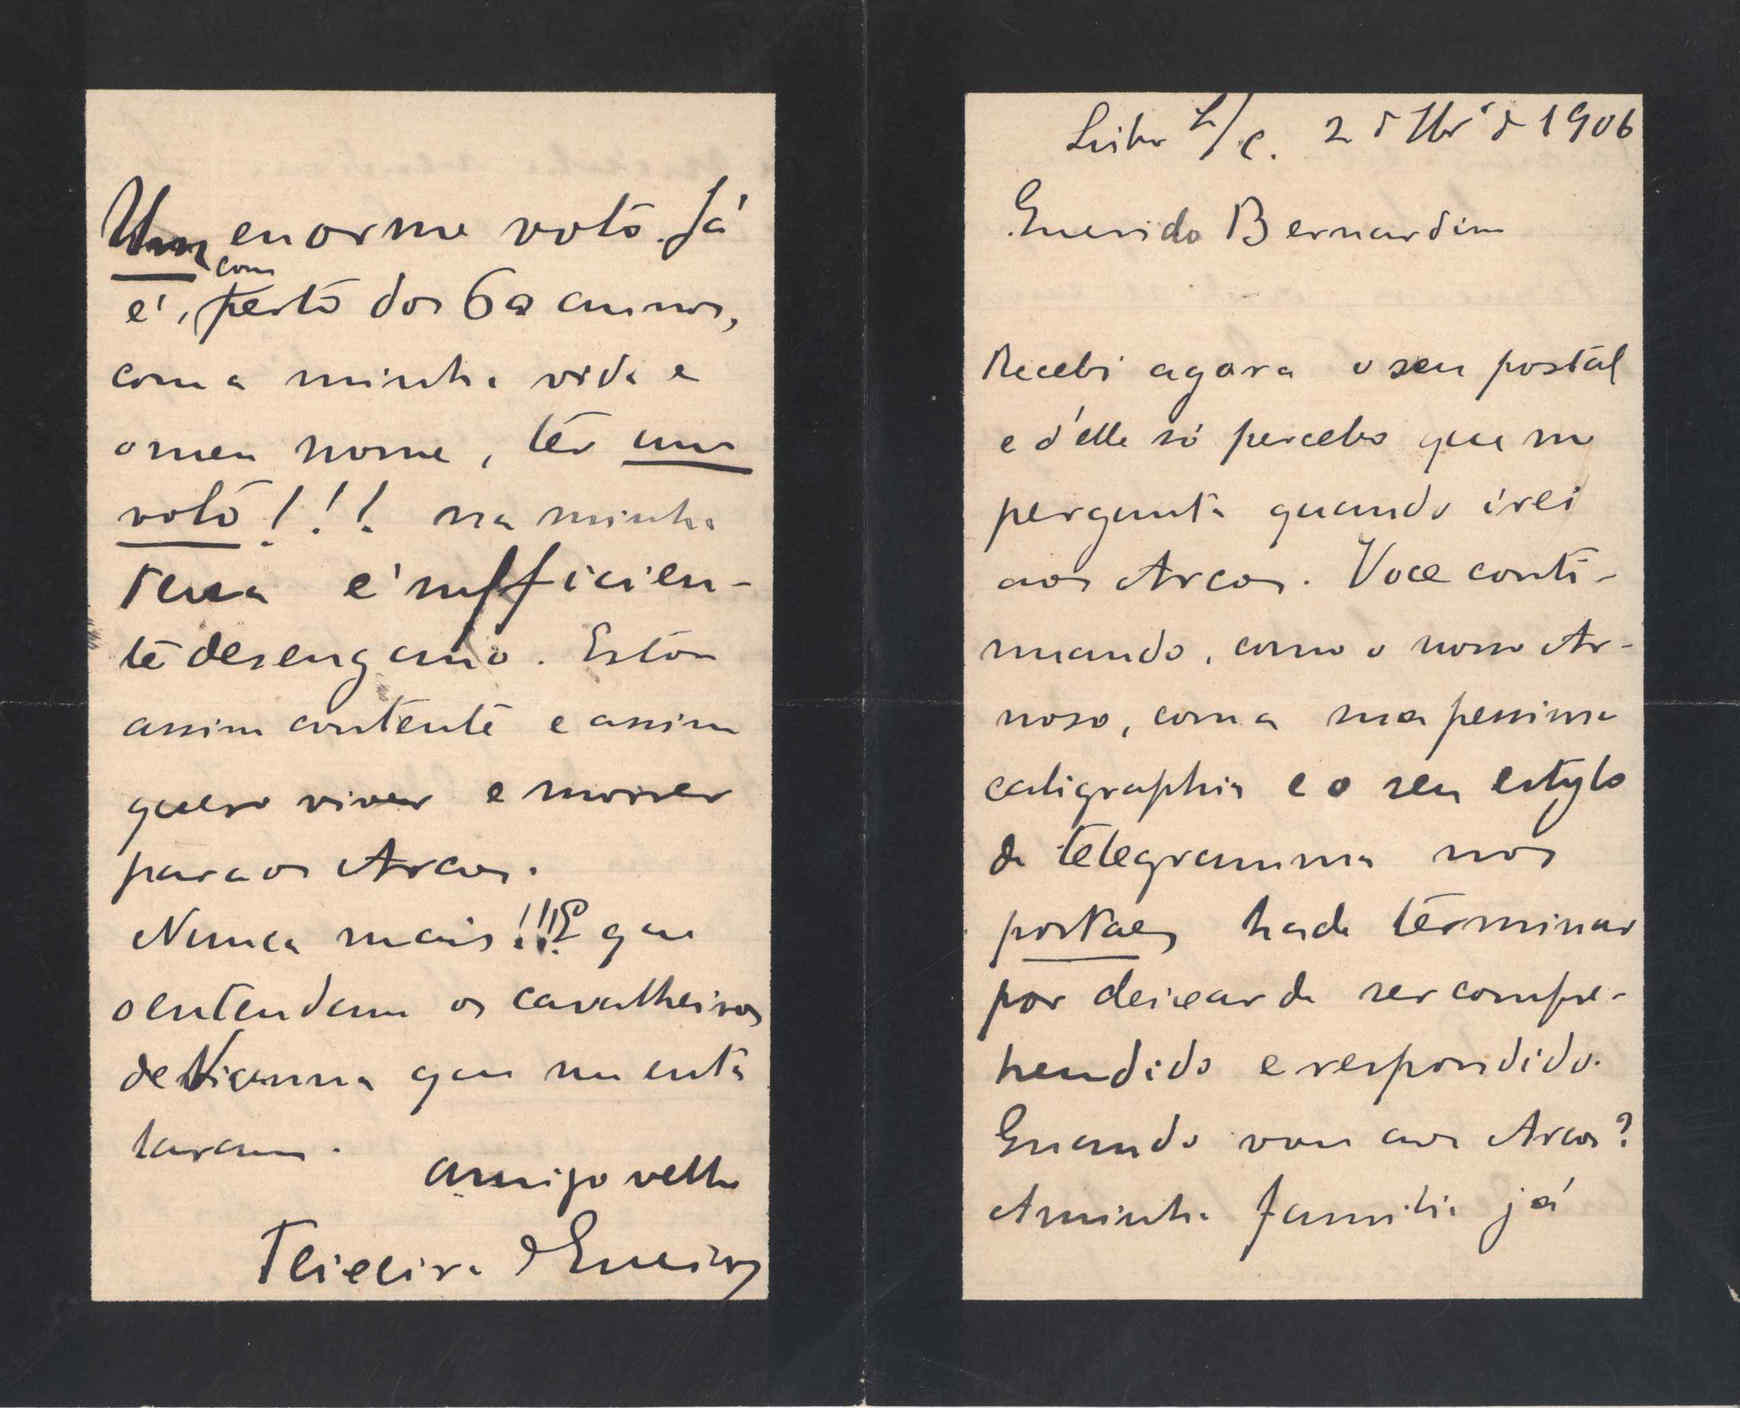 Lisbo L/c. 2 d 9br.º d 1906
Querido Bernardim
Recebi agora o seu postal
e d'elle só percebo que me
pergunta quando irei
aos Arcos. Voce conti-
nuando, como o nosso Ar-
noso, com a sua pessima
caligraphia e o seu estylo
de telegramma nos
postaes hade terminar
por deixar de ser compre-
hendido e respondido.
Quando vou aos Arcos?
A minha familia já
Um enorme voto. Já
com
é, perto dos 60 annos,
com a minha vida e
o meu nome, ter um
voto!!! na minha
terra é sufficien-
te desengano. Estou
assim contente e assim
quero viver e morrer
para os Arcos.
Nunca mais!!! E que
o entendam os cavalheiros
de Vianna que me enta
laram.
amigo velho
Teixeira d'Queiroz